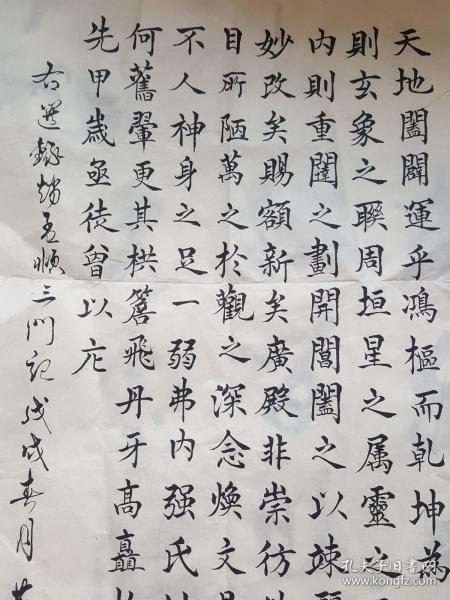 天地闔闢運乎鴻樞而乾坤為
則玄象之聨周垣星之属靈之
内則重闥之劃開閶闔之以竦
妙改矣賜額新矣廣殿非崇彷
目所陋萬之於觀之深念煥文
不人神身之足一弱弗内强氏
何舊翬更其栱簷飛丹牙高矗
先甲歲亟徒曾以庀
右選錄趙孟頫三門記戊戌春月
孔夫子旧书网
www.kongfz.com